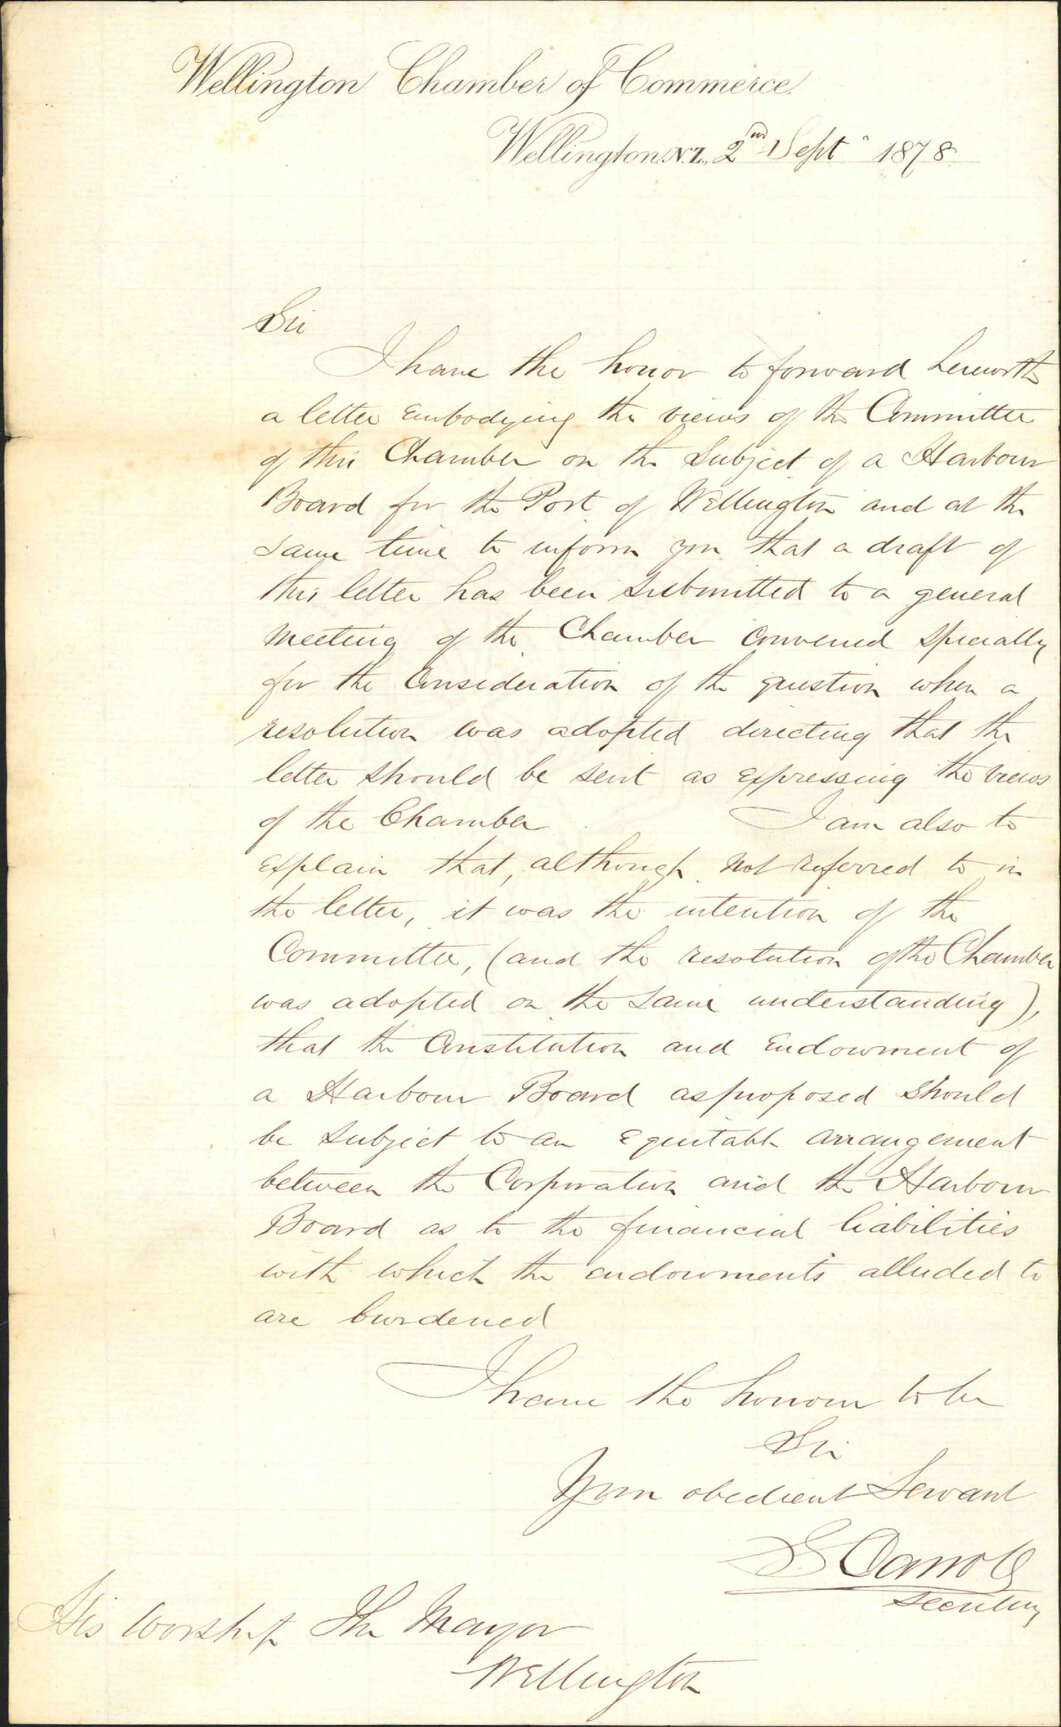 Wellington Chamber of Commerce.
Wellington N.Z. 2nd Sept 1878
Sir
I have the honor to forward herewith
a letter embodying the views of the Committee
of this Chamber on the subject of a Harbour
Board for the Port of Wellington and at the
same time to inform you that a draft of
this letter has been submitted to a general
meeting of the Chamber convened specially
for the consideration of the question when a
resolution was adopted directing that the
letter should be sent as expressing the views
of the Chamber I am also to
explain that, although not referred to in
the letter, it was the intention of the
Committee, (and the resolution of the Chamber
was adopted on the same understanding),
that the Constitution and Endowment of
a Harbour Board as proposed should
be subject to an equitable arrangement
between the Corporation and the Harbour
Board as to the financial liabilities
with which the endowments alluded to
are burdened
I have the honour to be
Sir
Your obedient Servant
S Carroll
Secretary
His Worship The Mayor
Wellington